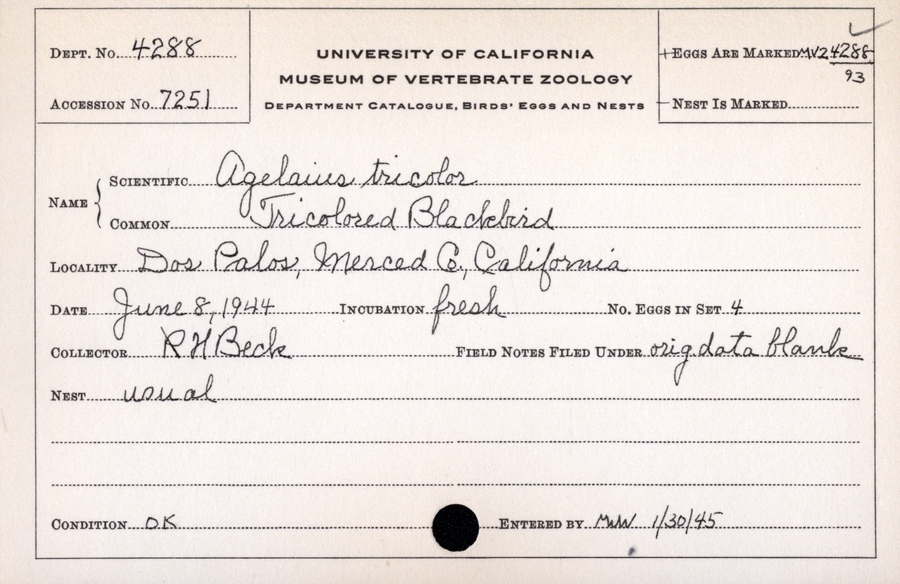 DEPT. NO. 4288
ACCESSION NO. 7251
UNIVERSITY OF CALIFORNIA
MUSEUM OF VERTEBRATE ZOOLOGY
DEPARTMENT CATALOGUE, BIRDS' EGGS AND NESTS
EGGS ARE MARKED MVZ 4288
93
NEST IS MARKED
NAME
SCIENTIFIC Agelaius tricolor
COMMON Tricolored Blackbird
LOCALITY Dos Palos, Merced Co., California
DATE June 8, 1944 INCUBATION fresh NO. EGGS IN SET 4
COLLECTOR R H Beck FIELD NOTES FILED UNDER orig. data blank
NEST usual
CONDITION OK ENTERED BY 1/30/45